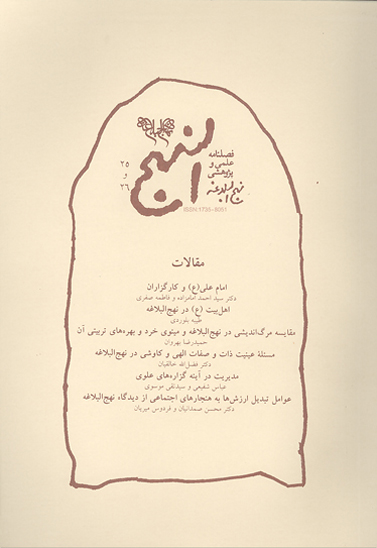 النهج
فصلنامه
علمی و
پژوهشی
نهج البلاغه
۲۵
و
۲۶
ISSN 1735-8051
مقالات
امام علی(ع) و کارگزاران
دکتر سید احمد امامزاده و فاطمه صفری
اهل‌بیت (ع) در نهج‌البلاغه
طیبه بلوردی
مقایسه مرگ‌اندیشی در نهج‌البلاغه و مینوی خرد و بهره‌های تربیتی آن
حمیدرضا بهروان
مسئلهٔ عینیت ذات و صفات الهی و کاوشی در نهج‌البلاغه
دکتر فضل‌الله خالقیان
مدیریت در آینه گزاره‌های علوی
عباس شفیعی و سیدتقی موسوی
عوامل تبدیل ارزش‌ها به هنجارهای اجتماعی از دیدگاه نهج‌البلاغه
دکتر محسن صمدانیان و فردوس میریان